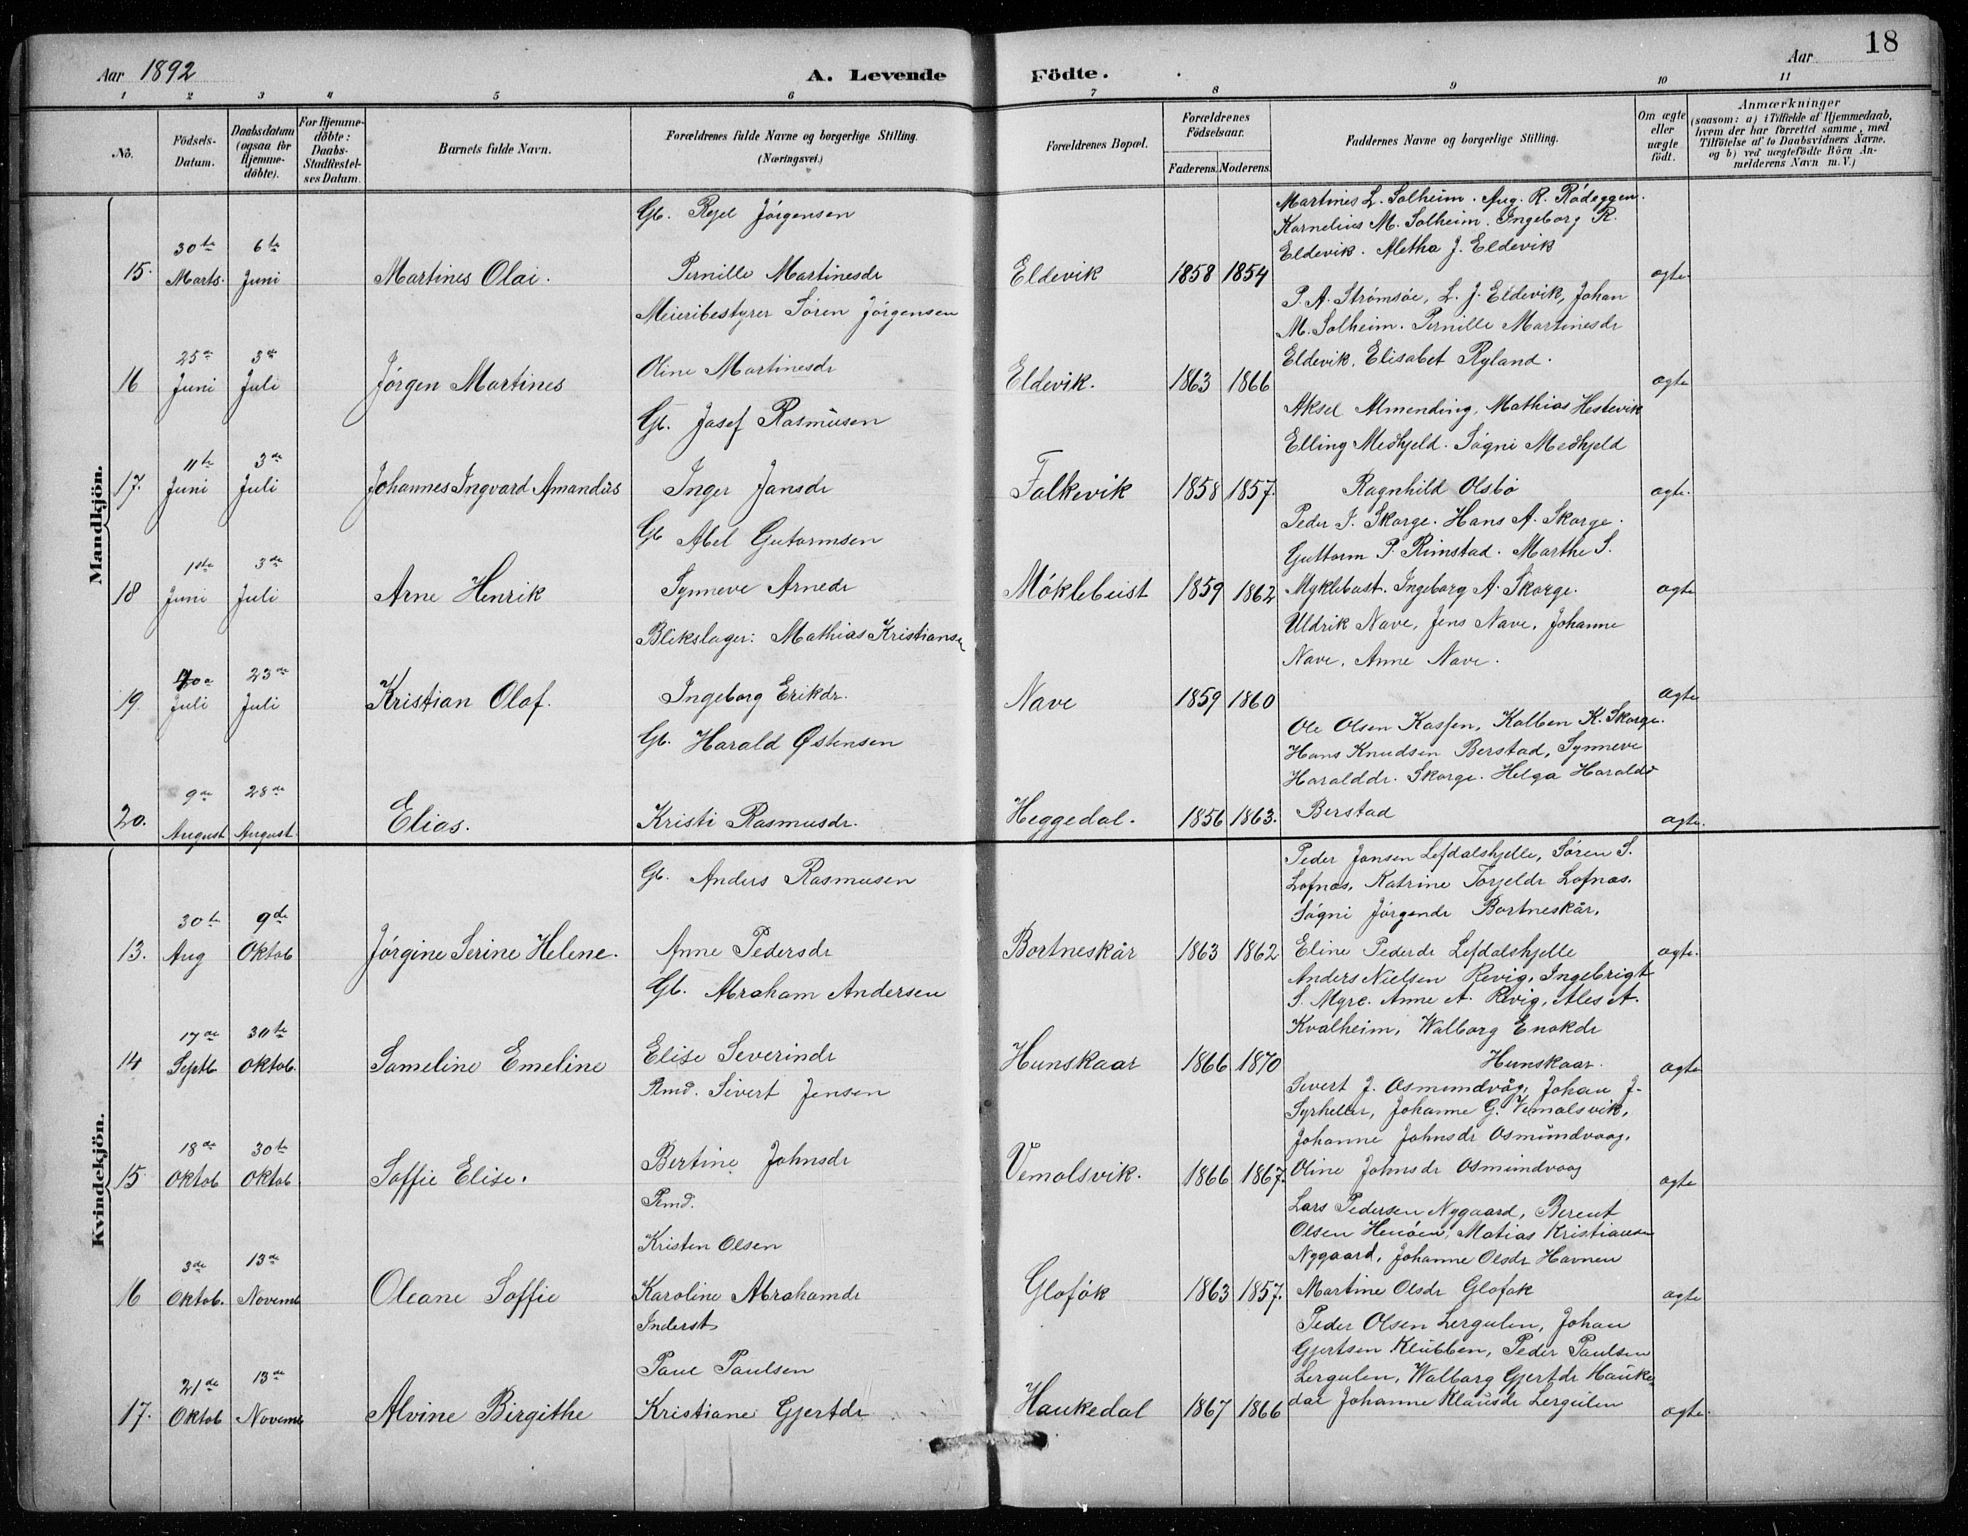 Aar 1892
A. Levende
Födte.
Aar
18
1 2 3 4 5 6 7 8 9 10 11
No.
Födsels-Datum.
Daabsdatum (ogsaa for Hjemme-döbte).
For Hjemme-döbte: Daabs-Stadfæstel-ses Datum.
Barnets fulde Navn.
Forældrenes fulde Navne og borgerlige Stilling. (Næringsvei.)
Forældrenes Bopæl.
Forældrenes Födselsaar.
Faderens. Moderens.
Faddernes Navne og borgerlige Stilling.
Om ægte eller uægte födt.
Anmærkninger (saasom: a) i Tilfælde af Hjemmedaab, hvem der har forrettet samme, med Tilföielse af to Daabsvidners Navne, og b) ved uægtefödte Börn An-melderens Navn m. V.)
Mandkjön.
15. 30te Marts. 6te Juni Martines Olai.
Gb. Rejel Jørgensen
Pernille Martinesdr
Eldevik 1858 1854
Martines L. Solheim. Aug. R. Rødeggen.
Kornelius M. Solheim. Ingeborg R.
Eldevik. Aletha J. Eldevik
ægte
16 25de Juni 3die Juli Jørgen Martines
Meieribestyrer Søren Jørgensen
Oline Martinesdr
Eldevik. 1863 1866
P. A. Strømsøe, L. J. Eldevik, Johan
M. Solheim. Pernille Martinesdr
Eldevik. Elisabet Ryland.
ægte
17. 11te Juni 3de Juli Johannes Ingvard Amandus
Gb. Josef Rasmusen
Inger Jansdr
Falkevik 1858 1857.
Aksel Almending, Mathias Hestevik
Elling Meshjeld. Søgni Meshjeld
Ragnhild Olsbø
ægte.
18 1ste Juni 3de Juli Arne Henrik
Gb Abel Gutormsen
Synneve Arnedr
Møklebust 1859 1862
Peder J. Skorge. Hans A. Skorge.
Guttorm P. Rimstad. Marthe S.
Myklebust. Ingeborg A. Skorge.
ægte
19. Juli 23de Juli Kristian Olaf.
Blikslager: Mathias Kristianse
Ingeborg Erikdr.
Nave 1859 1860
Uldrik Nave, Jens Nave, Johanne
Nave, Anne Nave.
ægte
20. 9de August 28de August. Elias.
Gb. Harald Østensen
Kristi Rasmusdr.
Heggedal. 1856 1863.
Ole Olsen Kasfen, Kolben K. Skorge.
Hans Knudsen Berstad, Synneve
Haralddr. Skorge. Helga Haraldd
Berstad
ægte.
Kvindekjön.
13. 30te Aug 9de Oktob Jørgine Serine Helene.
Gb. Anders Rasmusen
Anne Pedersdr
Bortneskår 1863 1862
Peder Jansen Lefdalshjelle, Søren S.
Lofnæs, Katrine Torjeldr Lofnæs.
Søgni Jørgendr Bortneskår,
Eline Pederdr Lefdalshjelle
ægte.
14 17de Septb 30te Oktob. Sameline Emeline
Gb. Abraham Andersen
Elise Severindr
Hunskaar 1866 1870
Anders Nielsen Revig, Ingebrigt
S. Myre. Anne A. Revig, Ales A.
Kvalheim, Walborg Enokdr
Hunskaar.
ægte
15 18de Oktob 30te Oktob Soffie Elise.
Rmd. Sivert Jensen
Bertine Johnsdr
Vemolsvik. 1866 1867.
Severt J. Osmundvåg, Johan J.
Syrheller, Johanne G. Vemolsvik,
Johanne Johnsdr Osmundvaag,
Oline Johnsdr Osmundvaag
ægte
16 3de Oktob. 13de Novemb Oleane Soffie
Rmd.
Kristen Olsen
Karoline Abrahamdr
Gloføk 1863 1857.
Lars Pedersen Nygaard, Berent
Olsen Henøen, Matias Kristiansen
Nygaard, Johanne Olsdr Havnen
Martine Olsdr Gloføk
ægte
17. 21de Oktob 13de Novemb Alvine Birgithe
Inderst
Paul Paulsen
Kristiane Gjertdr
Haukedal 1867 1866
Peder Olsen Lergulen, Johan
Gjertsen Klubben, Peder Paulsen
Lergulen, Walborg Gjertdr Hauke-
dal Johanne Klausdr Lergulen
ægte.